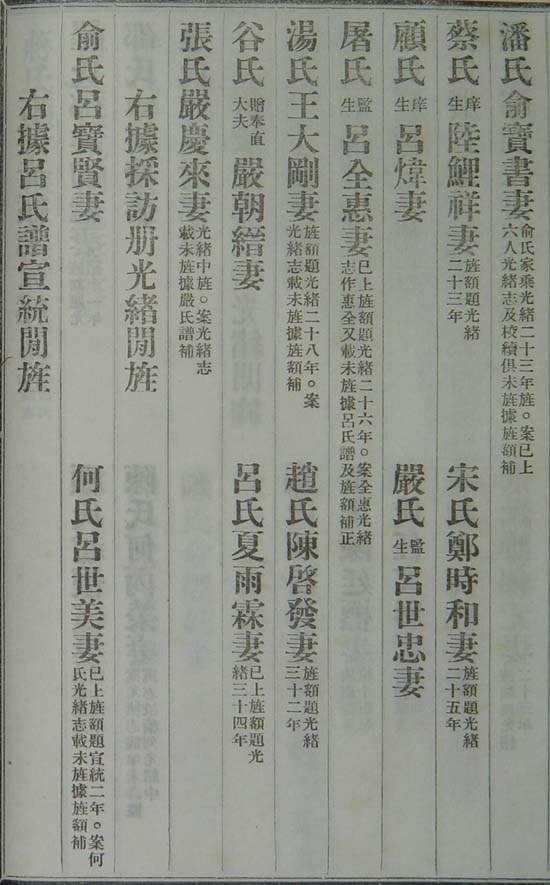 潘氏俞寶書妻俞氏家乘光緒二十三年旌○案已上六人光緒志及校續俱未旌據旌額補
蔡氏庠生陸鯉祥妻旌額題光緒二十三年 宋氏鄭時和妻旌額題光緒二十五年
顧氏庠生呂煒妻 嚴氏監生呂世忠妻
屠氏監生呂全惠妻已上旌額題光緒二十六年○案全惠光緒志作惠全又載未旌據呂氏譜及旌額補正
湯氏王大剛妻旌額題光緒二十八年○案光緒志載未旌據旌額補 趙氏陳啓發妻旌額題光緒三十二年
谷氏贈奉直大夫嚴朝縉妻 呂氏夏雨霖妻已上旌額題光緒三十四年
張氏嚴慶來妻光緒中旌○案光緒志載未旌據嚴氏譜補
右據採訪册光緒閒旌
俞氏呂寶賢妻 何氏呂世美妻已上旌額題宣統二年○案何氏光緒志載未旌據旌額補
右據呂氏譜宣統閒旌